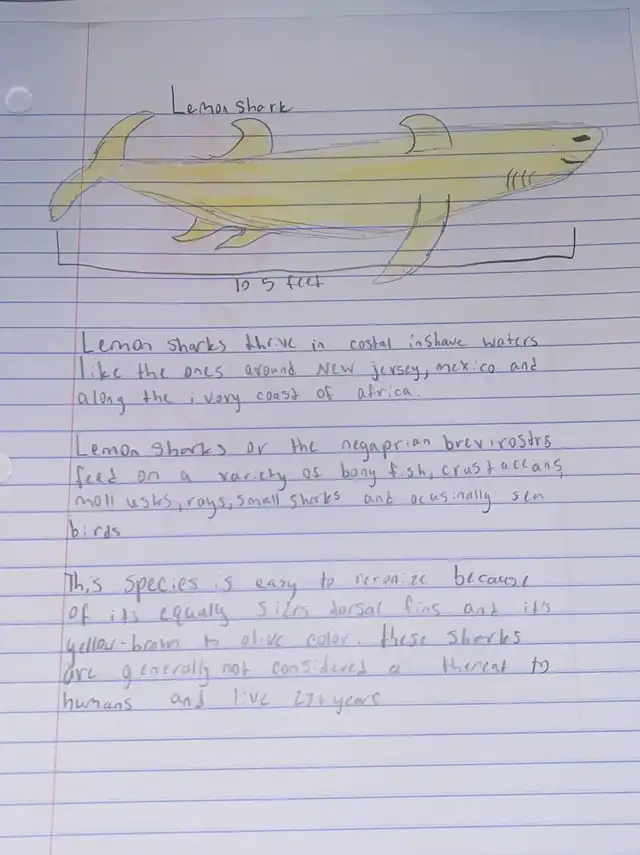 Lemon shark
10 5 feet
Lemon sharks thrive in costal inshave waters
like the ones around New jersey, mexico and
along the ivory coast of africa.
Lemon sharks or the negaprian brevirostrs
feed on a variety of bony fish, crustaceans,
mollusks, rays, small sharks and ocasinally sea
birds
This species is easy to reronize because
of its equaly sizes dorsal fins and it's
yellow-brown to olive color. these sharks
are generally not considered a thereat to
humans and live 27+ years